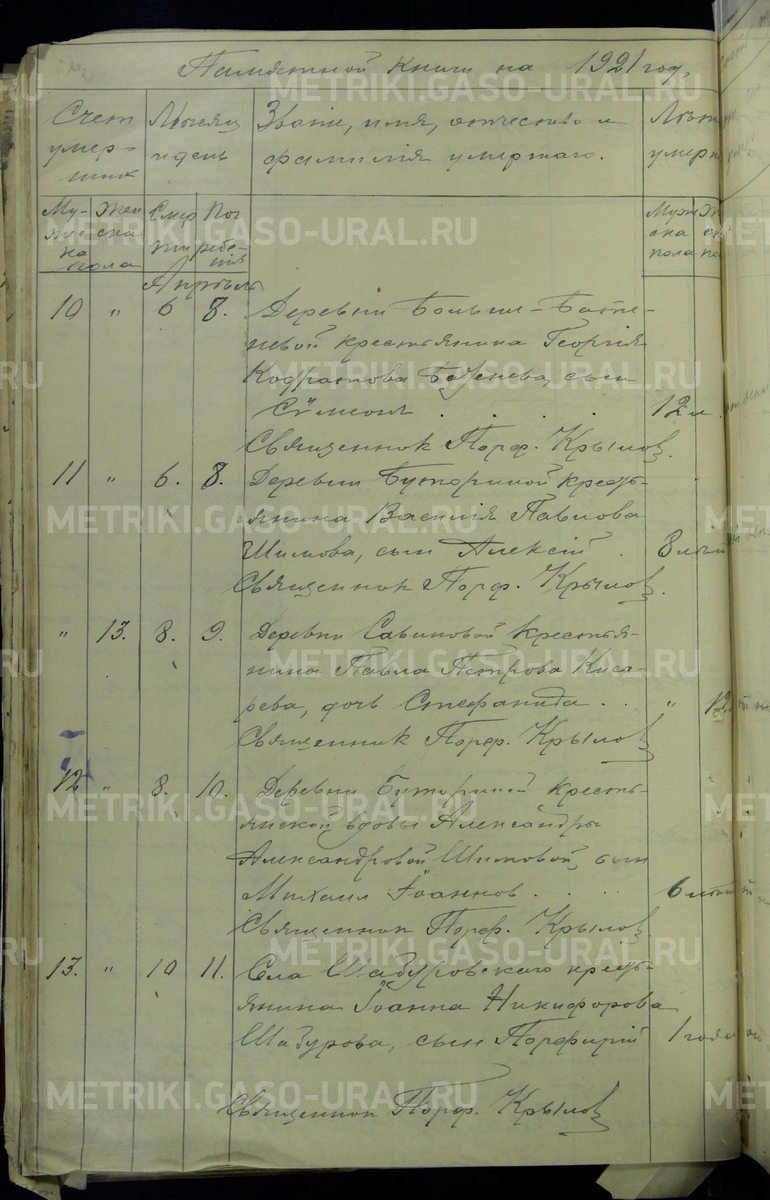 Памятной книги на 1921 год.
Счет умер-ших
Месяц и день
Званіе, имя, отчество и фамилія умершаго.
Лѣта умер
Му-жес-ка пола
Жен ска
Смер ти
Пог ребе-нія
Муж ска пола
Апрѣль
10 " 6 8. Деревни Больше-
невой крестьянина Георгія
сын
Сѵмеона . . . . 12 л.
Священник Порф. Крылов
11 " 6. 8. Деревни Буториной кресть-
янина Василія Павлова
Шимова, сын Алексѣй . 8 лѣт
Священник Порф. Крылов.
" 13. 8. 9. Деревни Савиновой крестья-
нина Павла Петрова Киса-
рева, дочь Стефанида . . " 12
Священник Порф. Крылов
12 " 8. 10. Деревни Буториной кресть-
янской вдовы Александры
Александровой Шимовой, сын
Михаил Іоаннов . . . 6 лѣт
Священник Порф. Крылов.
13. " 10 11. Села Шабуровскаго кресть-
янина Іоанна Никифорова
Шабурова, сын Порфирій 1 года
Священник Порф. Крылов
METRIKI.GASO-URAL.RU